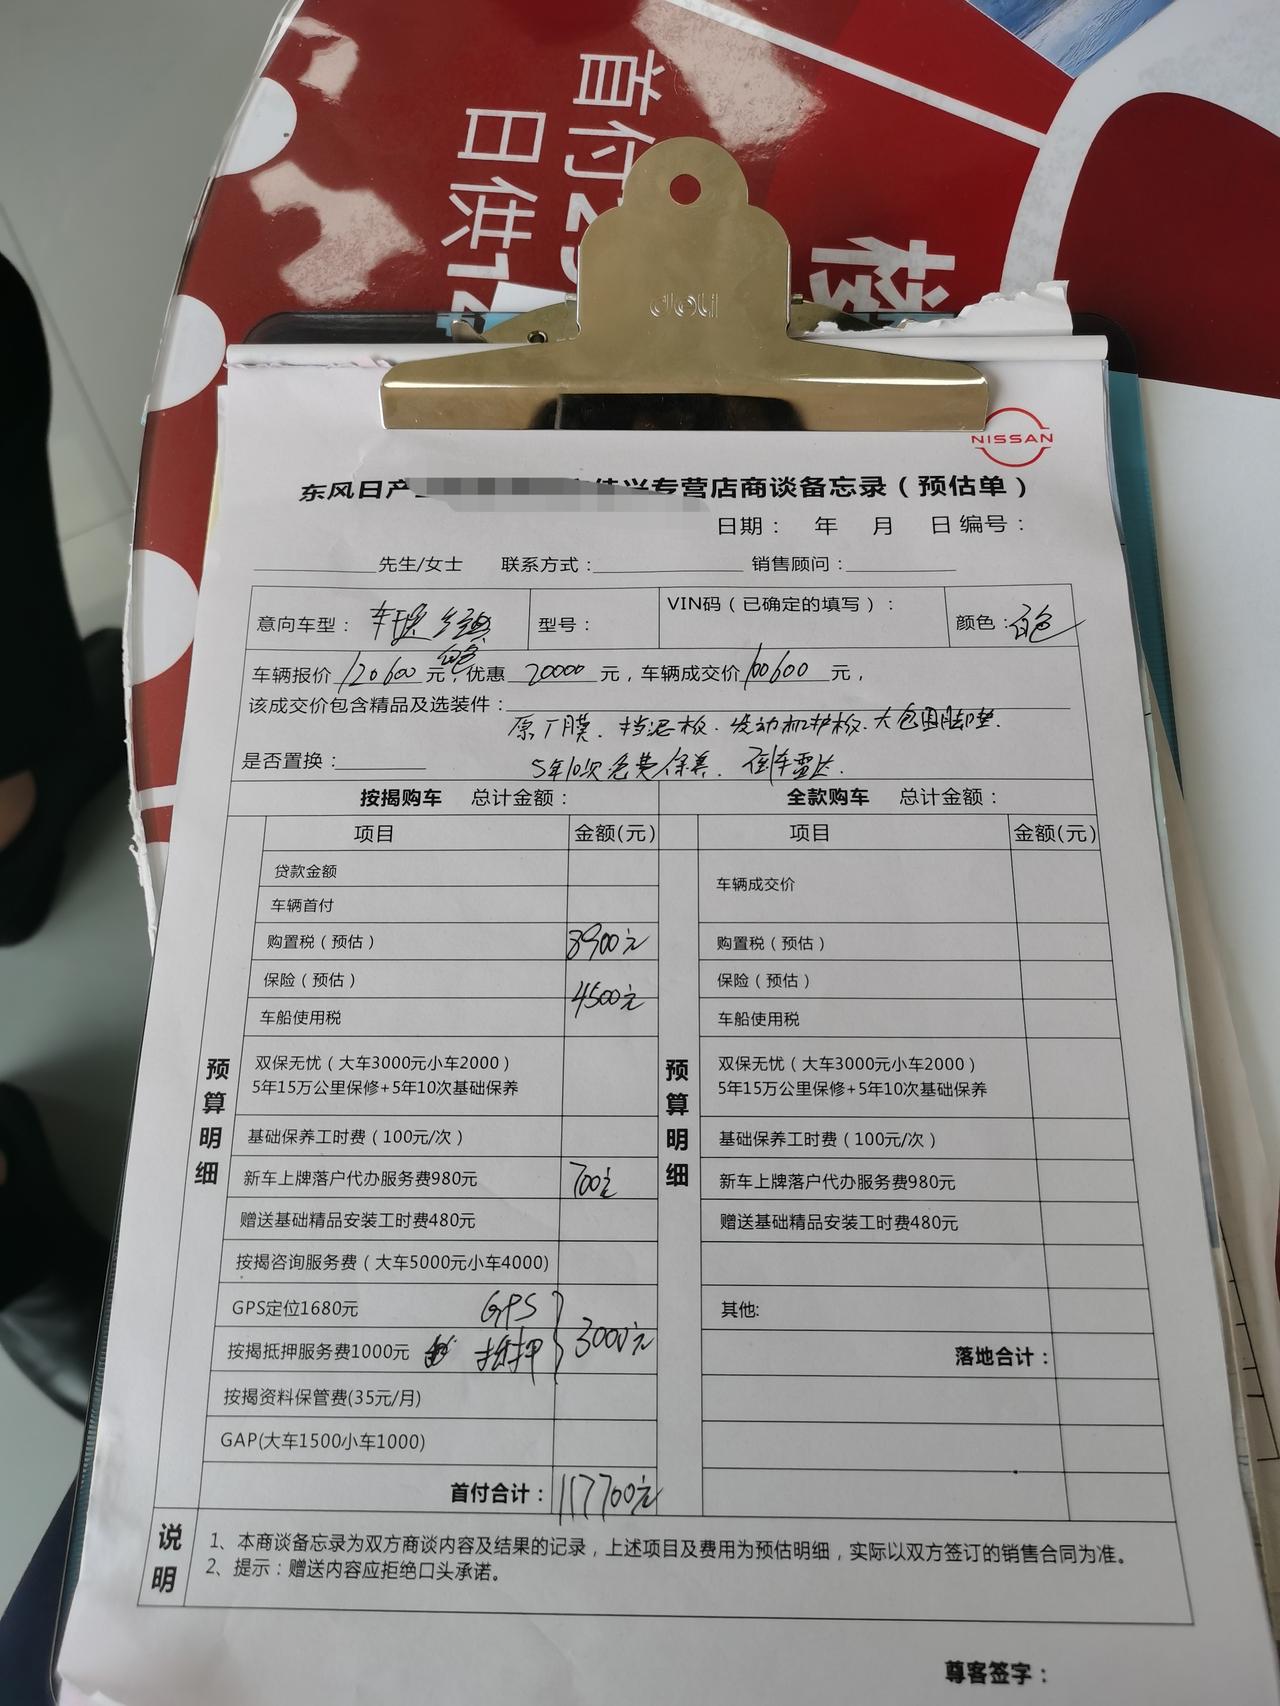 首付2
日供1
deli
NISSAN
东风日产 佳兴专营店商谈备忘录（预估单）
日期： 年 月 日 编号：
先生/女士 联系方式： 销售顾问：
意向车型： 轩逸 经典 型号： VIN码（已确定的填写）： 颜色：白色
白色
车辆报价 120600 元，优惠 20000 元，车辆成交价 100600 元，
该成交价包含精品及选装件：
原厂膜、挡泥板、发动机护板、大包围脚垫、
是否置换： 5年10次免费保养、倒车雷达.
按揭购车 总计金额： 全款购车 总计金额：
项目 金额(元) 项目 金额(元)
预算明细
贷款金额
车辆首付
购置税（预估） 8900元
保险（预估） 4500元
车船使用税
双保无忧（大车3000元小车2000）
5年15万公里保修+5年10次基础保养
基础保养工时费（100元/次）
新车上牌落户代办服务费980元 700元
赠送基础精品安装工时费480元
按揭咨询服务费（大车5000元小车4000)
GPS定位1680元 GPS
按揭抵押服务费1000元 抵押 3000元
按揭资料保管费(35元/月)
GAP(大车1500小车1000)
首付合计： 117700元
预算明细
车辆成交价
购置税（预估）
保险（预估）
车船使用税
双保无忧（大车3000元小车2000）
5年15万公里保修+5年10次基础保养
基础保养工时费（100元/次）
新车上牌落户代办服务费980元
赠送基础精品安装工时费480元
其他:
落地合计：
说明
1、本商谈备忘录为双方商谈内容及结果的记录，上述项目及费用为预估明细，实际以双方签订的销售合同为准。
2、提示：赠送内容应拒绝口头承诺。
尊客签字：